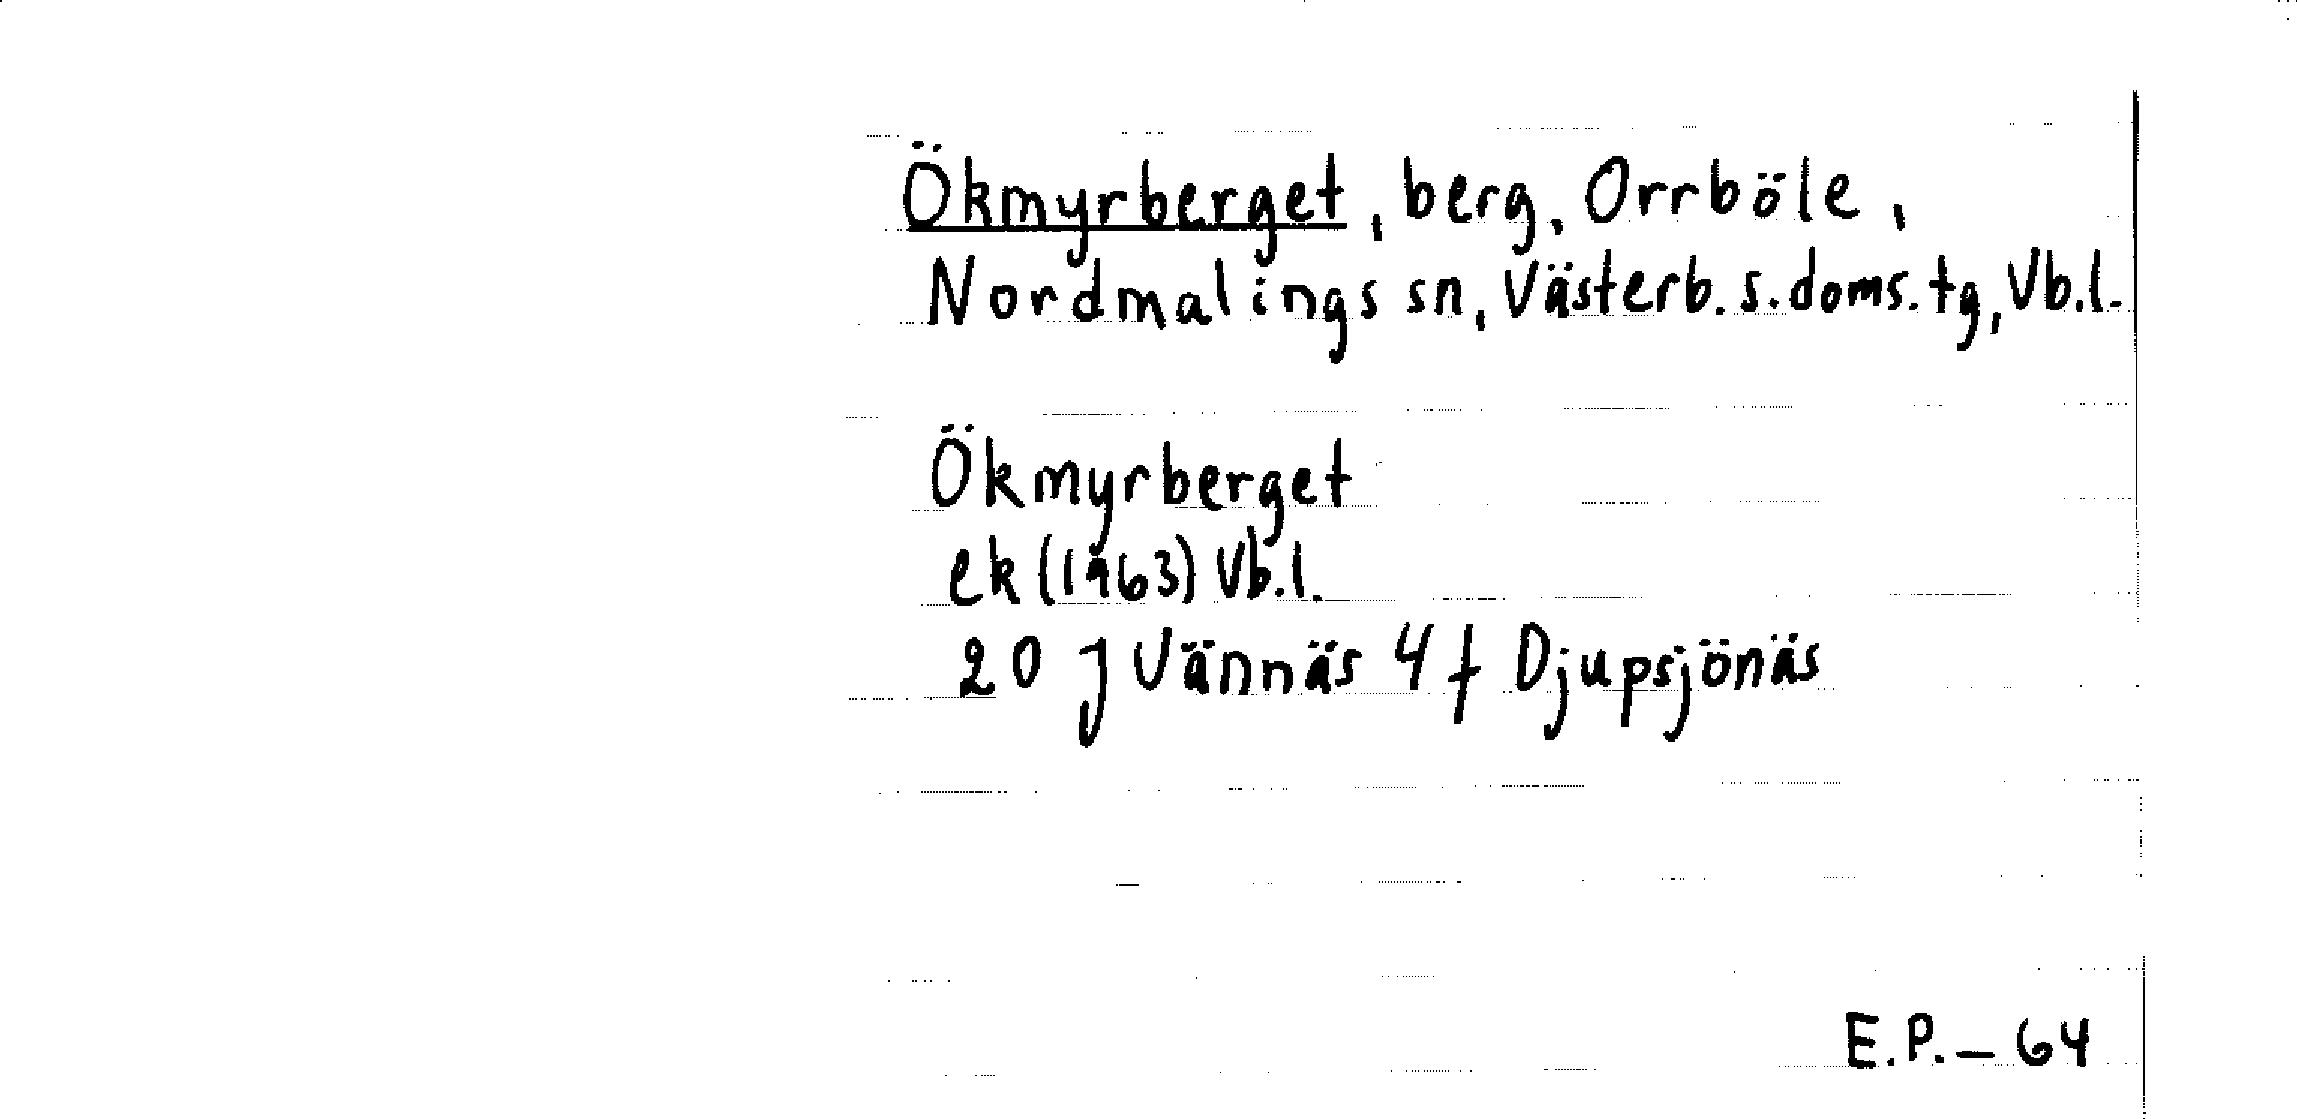 Ökmyrberget, berg, Orrböle,
Nordmalings sn, Västerb. s. doms. tg, Vb.l.
Ökmyrberget
ek (1963) Vb.l.
20 J Vännäs 4 f Djupsjönäs
E.P. – 64